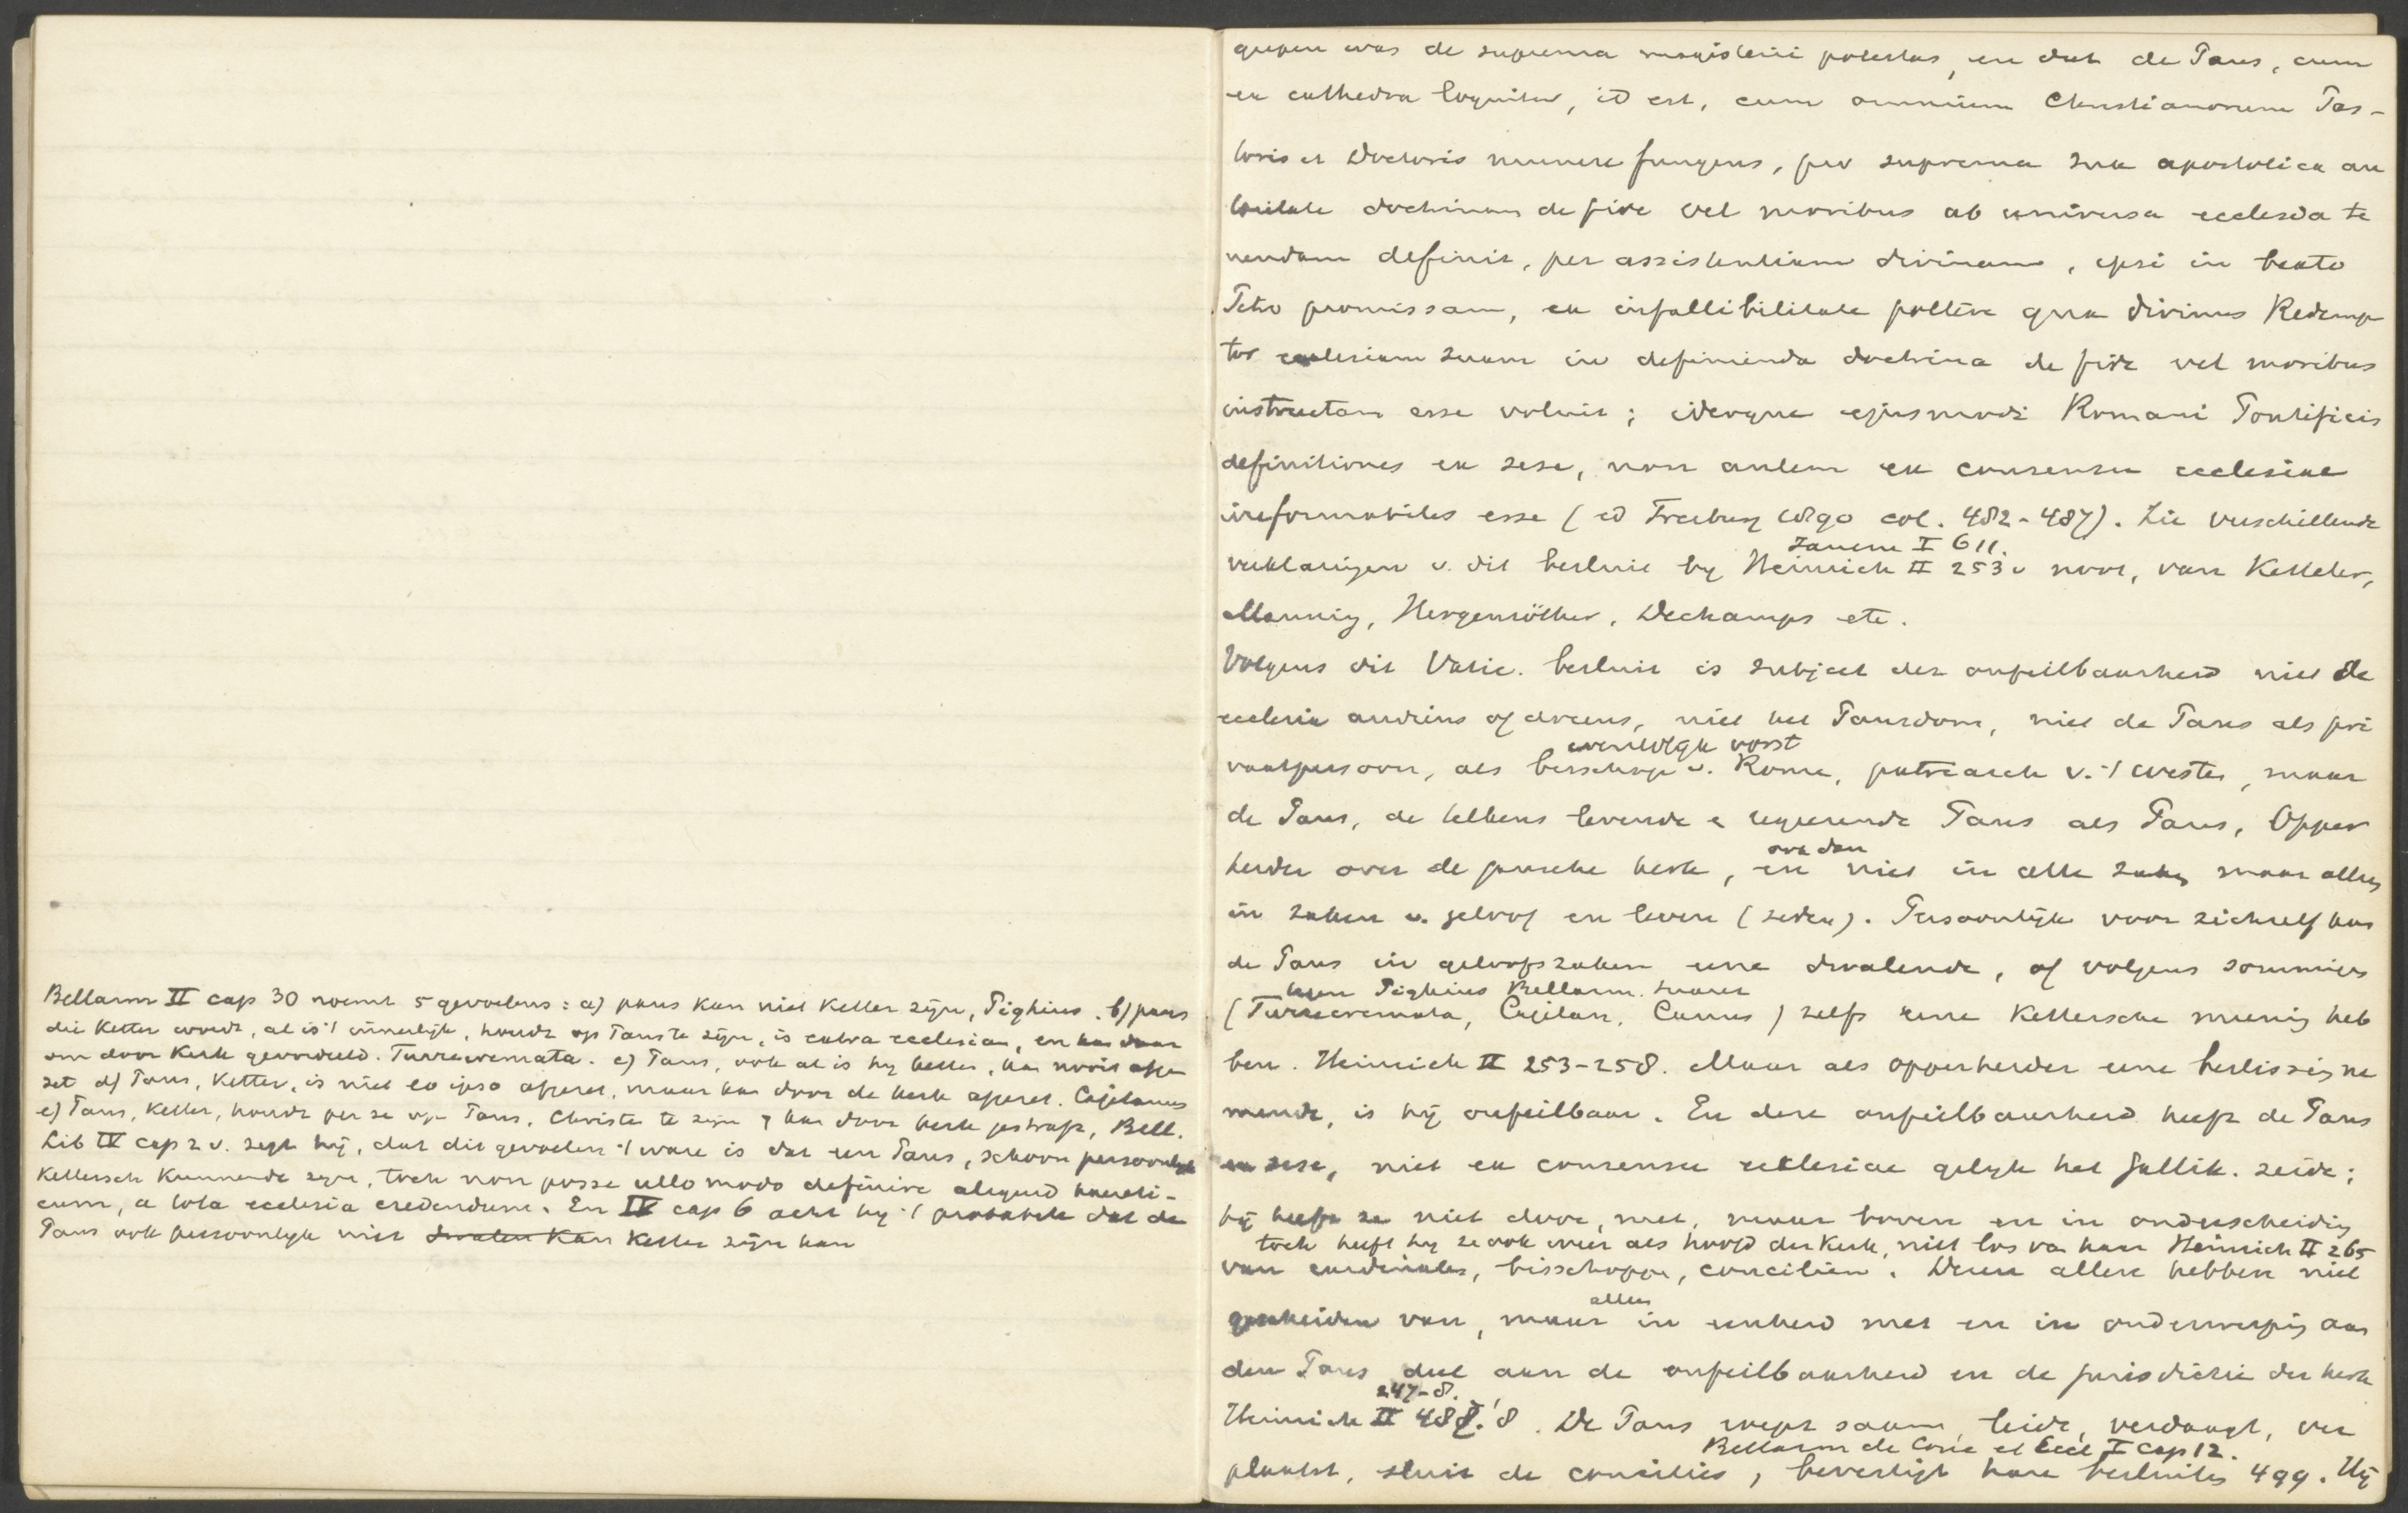 Bellarm II cap 30 noemt 5 gevoelens: a) paus kan niet ketter zijn, Pighius. b) paus
die ketter wordt, al is 't innerlijk, houdt op Paus te zijn, is extra ecclesiam, en kan daar
om door kerk geoordeeld. Turrecremata. c) Paus, ook al is hij ketter, kan nooit afge
zet d) Paus, ketter, is niet eo ipso afgezet, maar kan door de kerk afgezet. Cajetanus
e) Paus, ketter, houdt per se op Paus, Christen te zijn & kan door kerk gestraft, Bell.
Lib IV cap 2 v. zegt hij, dat dit gevoelen 't ware is dat een Paus, schoon persoonlijk
kettersch kunnende zijn, toch non posse ullo modo definire aliquid haereti-
cum, a tota ecclesia credendum. En IV cap 6 acht hij 't probabele dat de
Paus ook persoonlijk niet dwalen kan ketter zijn kan
grepen was de suprema magisterii potestas, en dat de Paus, cum
ex cathedra loquitur, id est, cum omnium Christianorum Pas-
toris et Doctoris munere fungens, pro suprema sua apostolica au
toritate doctrinam de fide vel moribus ab universa ecclesia te
nendam definit, per assistentiam divinam, ipsi in beato
Petro promissam, ea infallibilitate pollere qua divinus Redemp
tor ecclesiam suam in definienda doctrina de fide vel moribus
instructam esse voluit; ideoque ejusmodi Romani Pontificis
definitiones ex sese, non autem ex consensu ecclesiae
irreformabiles esse (ed Freiburg 1890 col. 482-487). Zie verschillende
Jansen I 611.
verklaringen v. dit besluit bij Heinrich II 253 v noot, van Ketteler,
Manning, Hergenröther, Dechamps etc.
Volgens dit Vatic. besluit is subject der onfeilbaarheid niet de
ecclesia audiens of docens, niet het Pausdom, niet de Paus als pri
wereldlijk vorst
vaatpersoon, als bisschop v. Rome, patriarch v. 't westen, maar
de Paus, de telkens levende & regeerende Paus als Paus, Opper
ook dan
herder over de gansche kerk, en niet in alle zaken maar alleen
in zaken v. geloof en leven (zeden). Persoonlijk voor zichzelf kan
de Paus in geloofszaken eene dwalende, of volgens sommigen
Pighius Bellarm. Suarez
(Turrecremata, Cajetan, Canus) zelfs eene kettersche meening heb
ben. Heinrich II 253-258. Maar als opperherder eene beslissing ne
mende, is hij onfeilbaar. En deze onfeilbaarheid heeft de Paus
ex sese, niet ex consensu ecclesiae gelijk het Gallik. zeide;
hij heeft ze niet door, met, maar boven en in onderscheiding
toch heeft hij ze ook weer als hoofd der kerk, niet los van haar Heinrich II 265
van cardinalen, bisschoppen, conciliën. Dezen allen hebben niet
alleen
gescheiden van, maar in eenheid met en in onderwerping aan
den Paus deel aan de onfeilbaarheid en de jurisdictie der kerk
247-8.
Heinrich II 487.'8. De Paus roept saam, leidt, verdaagt, ver
Bellarm de Conc et Eccl I cap 12.
plaatst, sluit de conciliën, bevestigt hare besluiten 499. Hij